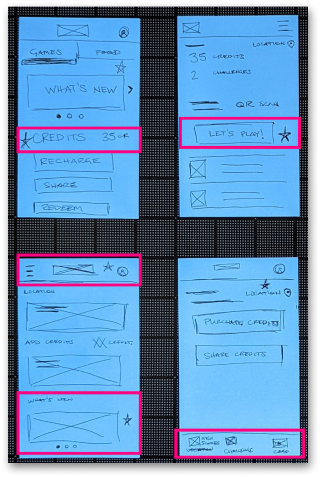 GAMES FOOD
WHAT'S NEW >
CREDITS 35 CR
RECHARGE
SHARE
REDEEM
LOCATION
35 CREDITS
2 CHALLENGES
QR SCAN
LET'S PLAY!
LOCATION
ADD CREDITS XX CREDIT.
WHAT'S NEW
LOCATION
PURCHASE CREDITS
SHARE CREDITS
CHALLENGE
CARD